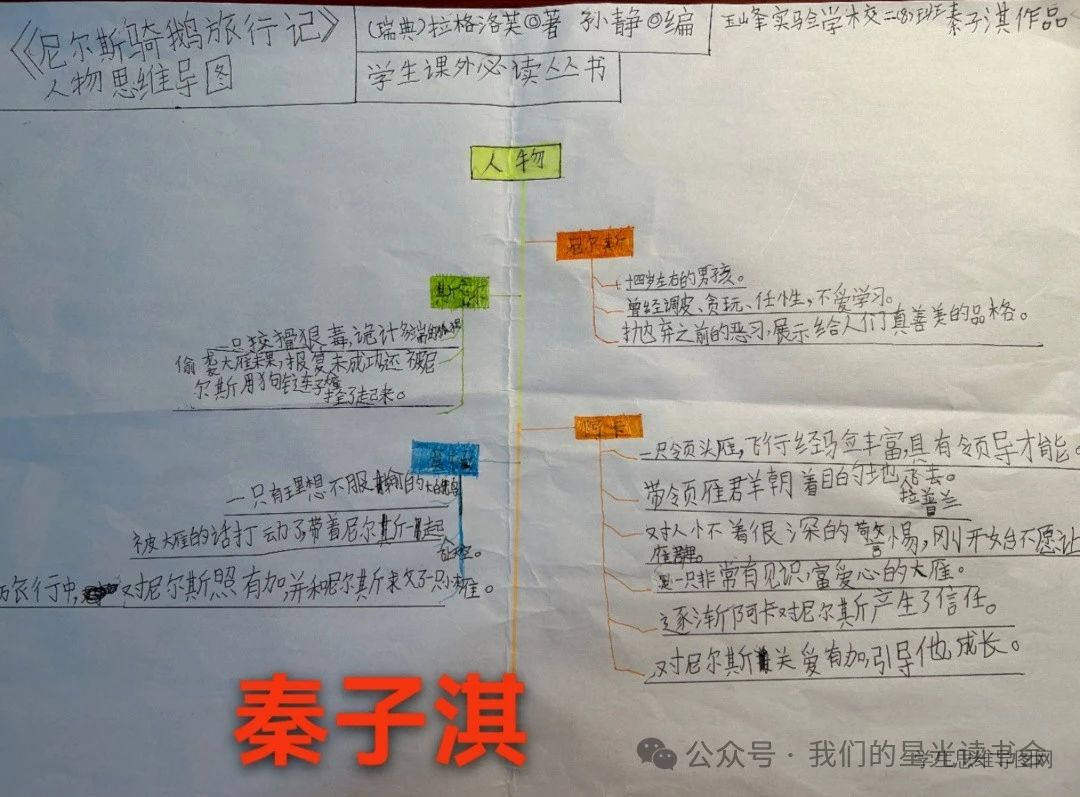 《尼尔斯骑鹅旅行记》
人物思维导图
(瑞典)拉格洛芙◎著 孙静◎编
学生课外必读丛书
玉峰实验学校二(8)班秦子淇作品
人物
尼尔斯
十四岁左右的男孩。
曾经调皮、贪玩、任性,不爱学习。
抛弃之前的恶习,展示给人们真善美的品格。
斯密尔
一只狡猾狠毒,诡计多端的狐狸
偷袭大雁未果,报复未成功还被尼
尔斯用狗链子
拴了起来。
阿卡
一只领头雁,飞行经验丰富,具有领导才能。
带领雁群朝着目的地飞去。
拉普兰
对人怀着很深的警惕,刚开始不愿让
人
雁群。
是一只非常有见识,富爱心的大雁。
逐渐阿卡对尼尔斯产生了信任。
对尼尔斯关爱有加,引导他成长。
一只有理想不服输的大白鹅
被大雁的话打动了,带着尼尔斯一起
旅行中,对尼尔斯照有加,并和尼尔斯救了一只小雁。
秦子淇
公众号·我们的星光读书会
学生思维导图网